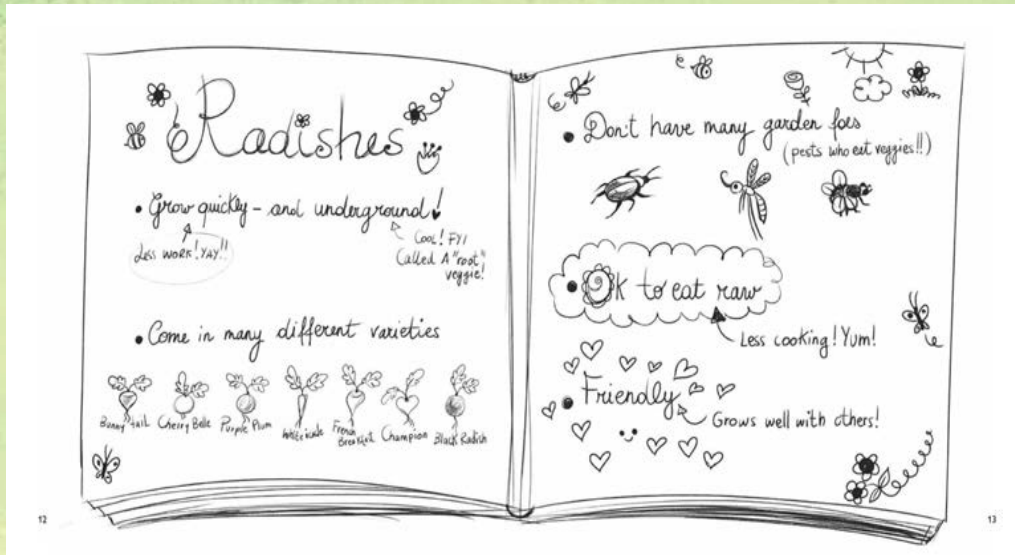 Radishes
• Grow quickly – and underground!
Less work! YAY!!
Cool! FYI
Called A "root"
veggie!
• Come in many different varieties
Bunny tail Cherry Belle Purple Plum White icicle French Breakfast Champion Black Radish
12
• Don't have many garden foes
(pests who eat veggies!!)
• Ok to eat raw
Less cooking! Yum!
• Friendly
Grows well with others!
13